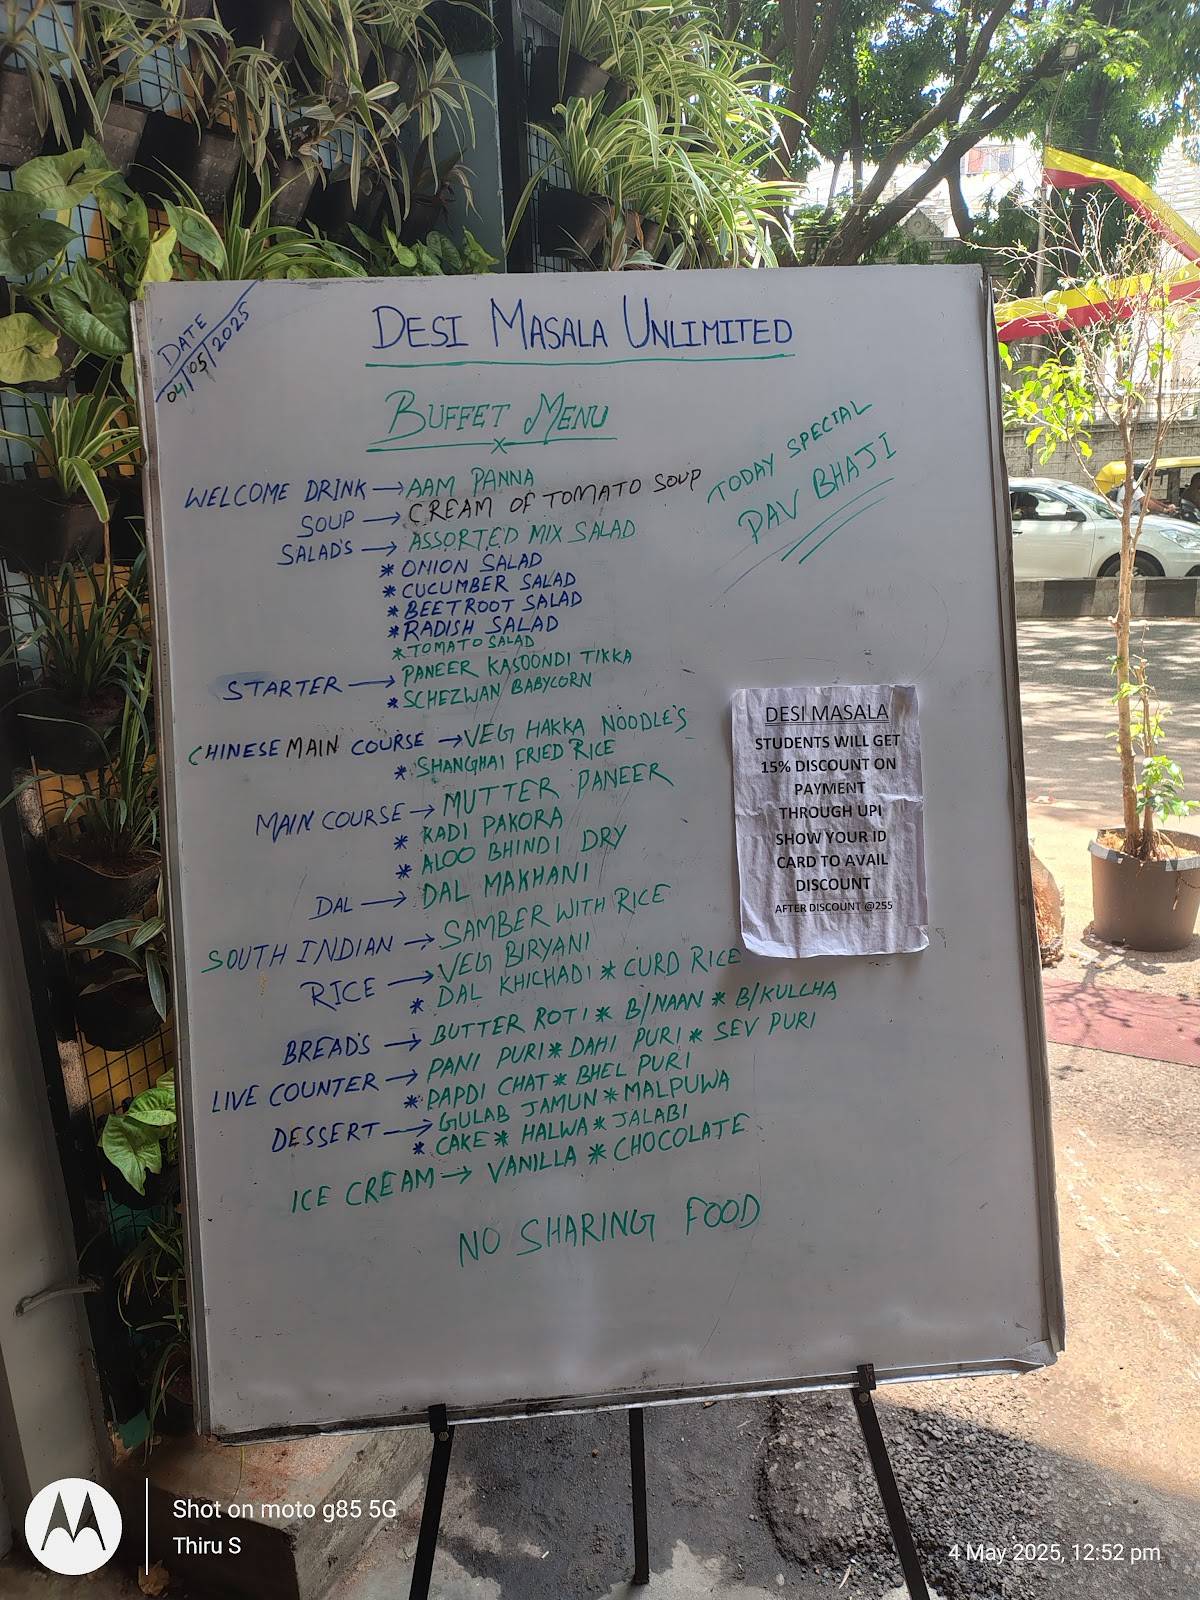 DATE
04/05/2025
DESI MASALA UNLIMITED
BUFFET MENU
x
TODAY SPECIAL
PAV BHAJI
WELCOME DRINK → AAM PANNA
SOUP → CREAM OF TOMATO SOUP
SALAD'S → ASSORTED MIX SALAD
* ONION SALAD
* CUCUMBER SALAD
* BEETROOT SALAD
* RADISH SALAD
* TOMATO SALAD
STARTER → PANEER KASOONDI TIKKA
* SCHEZWAN BABYCORN
CHINESE MAIN COURSE → VEG HAKKA NOODLE'S
* SHANGHAI FRIED RICE
MAIN COURSE → MUTTER PANEER
* KADI PAKORA
* ALOO BHINDI DRY
DAL → DAL MAKHANI
SOUTH INDIAN → SAMBER WITH RICE
RICE → VEG BIRYANI
* DAL KHICHADI * CURD RICE
BREAD'S → BUTTER ROTI * B/NAAN * B/KULCHA
LIVE COUNTER → PANI PURI * DAHI PURI * SEV PURI
* PAPDI CHAT * BHEL PURI
DESSERT → GULAB JAMUN * MALPUWA
* CAKE * HALWA * JALABI
ICE CREAM → VANILLA * CHOCOLATE
NO SHARING FOOD
DESI MASALA
STUDENTS WILL GET
15% DISCOUNT ON
PAYMENT
THROUGH UPI!
SHOW YOUR ID
CARD TO AVAIL
DISCOUNT
AFTER DISCOUNT @255
Shot on moto g85 5G
Thiru S
4 May 2025, 12:52 pm